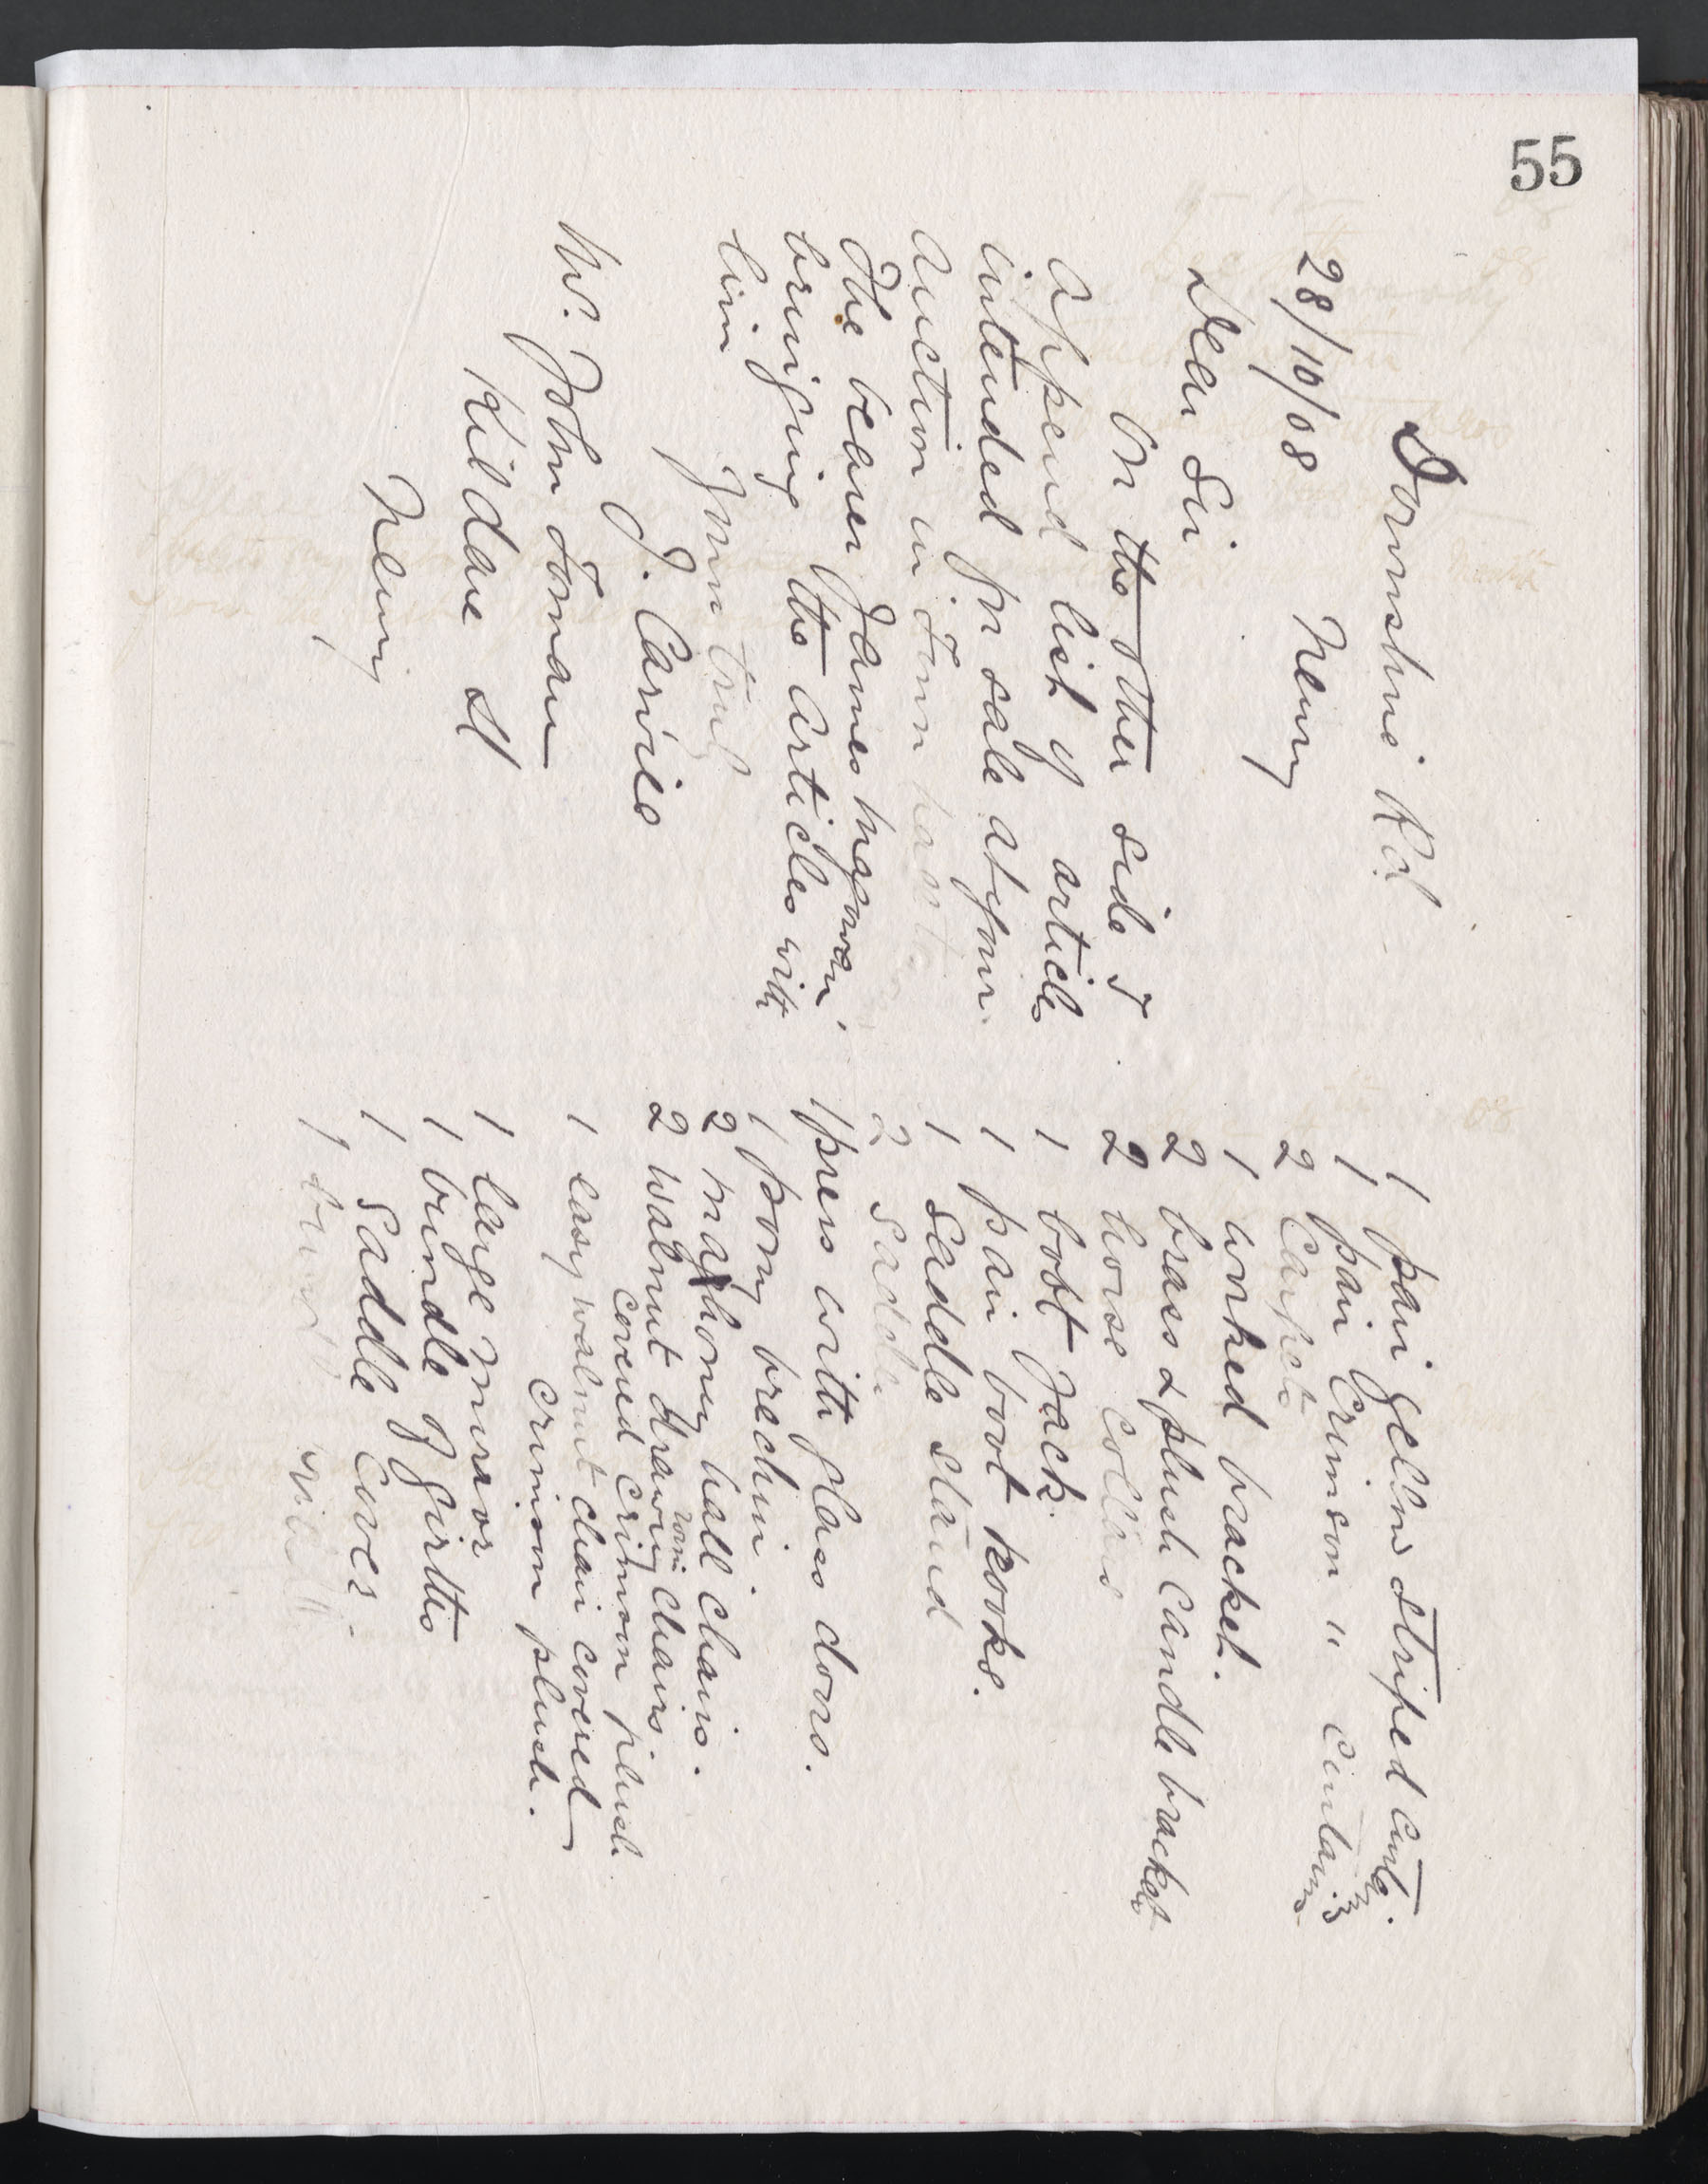 55
Dromshine Rd
28/10/08 Newry
Dear Sir
On the other side I
append list of articles
intended for sale at your
auction in Town hall
The bearer James Magowan
bringing the articles with
him
Yours truly
J. Carvill
Mr. John Toman
Kildare St
Newry
1 pair yellow striped curtn.
1 pair Crimson " curtains
2 Carpets
1 worked bracket.
2 brass & plush candle brackets
2 horse Collars
1 boot Jack.
1 pair boot hooks.
1 saddle stand
2 saddle
1 press with glass doors.
1 pony brechin.
2 mahhoney hall chairs.
2 walnut drawing room chairs
covered crimson plush.
1 easy walnut chair covered
crimson plush.
1 large mirror
1 bundle of girths
1 Saddle Cover.
1